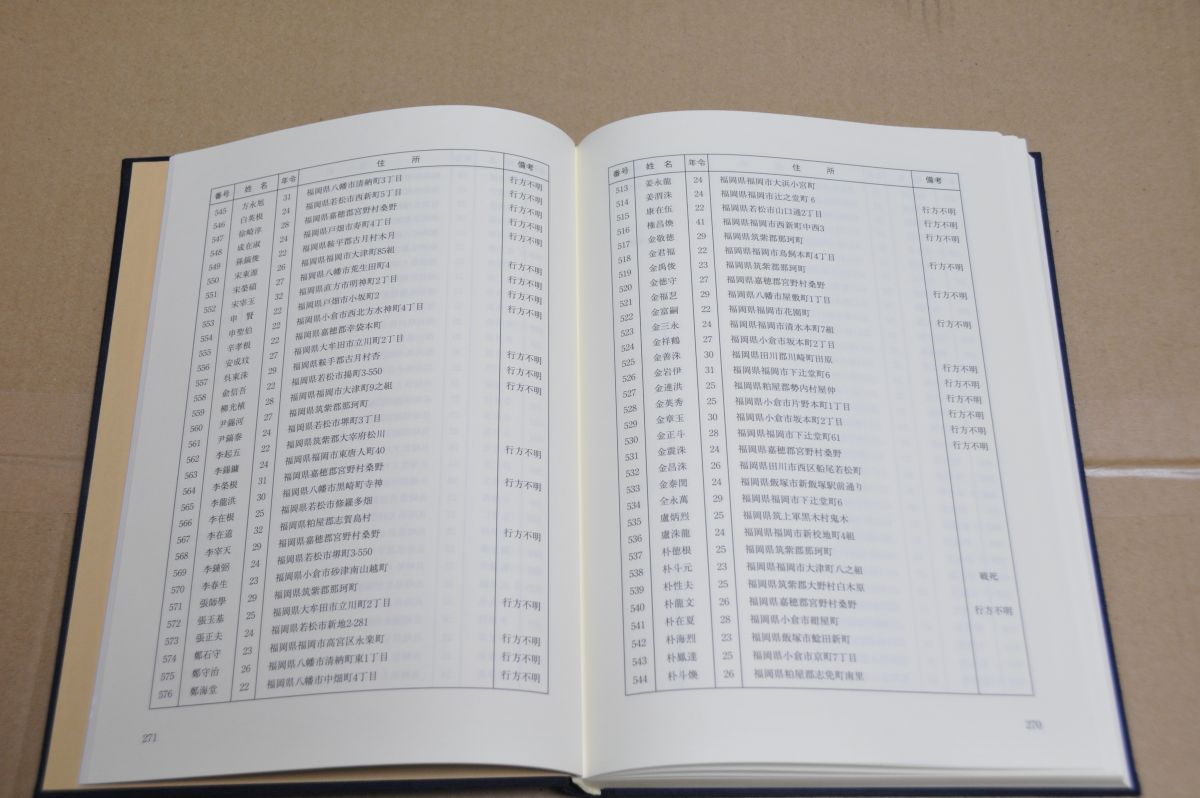 番号 姓名 年令 住所 備考
545 方永旭 31 福岡県八幡市清納町3丁目 行方不明
546 白英根 24 福岡県若松市西新町5丁目 行方不明
547 徐崎淳 28 福岡県嘉穂郡宮野村桑野 行方不明
548 成在淑 24 福岡県戸畑市寿町4丁目 行方不明
549 孫鎬俊 22 福岡県鞍平郡古月村木月 行方不明
550 宋東源 26 福岡県福岡市大津町85組
551 宋榮碩 27 福岡県八幡市荒生田町4 行方不明
552 宋宰玉 32 福岡県直方市明神町2丁目 行方不明
553 申賢 22 福岡県戸畑市小坂町2 行方不明
554 申聖伯 22 福岡県小倉市西北方水神町4丁目 行方不明
555 辛孝根 22 福岡県嘉穂郡幸袋本町
556 安成玟 27 福岡県大牟田市立川町2丁目
557 呉東洙 29 福岡県鞍手郡古月村杏 行方不明
558 兪信吾 22 福岡県若松市揚町3-550 行方不明
559 柳光植 28 福岡県福岡市大津町9之組 行方不明
560 尹錫河 27 福岡県筑紫郡那珂町
561 尹鎬泰 24 福岡県若松市堺町3丁目
562 李起五 22 福岡県筑紫郡大宰府松川
563 李錫鏞 24 福岡県福岡市東唐人町40 行方不明
564 李榮根 31 福岡県嘉穂郡宮野村桑野
565 李龍洪 30 福岡県八幡市黒崎町寺神 行方不明
566 李在根 25 福岡県若松市修羅多畑
567 李在道 32 福岡県粕屋郡志賀島村
568 李宰天 29 福岡県嘉穂郡宮野村桑野 行方不明
569 李鍾弼 24 福岡県若松市堺町3-550
570 李春生 23 福岡県小倉市砂津南山越町
571 張師學 29 福岡県筑紫郡那珂町
572 張玉基 25 福岡県大牟田市立川町2丁目 行方不明
573 張正夫 24 福岡県若松市新地2-281
574 鄭石守 23 福岡県福岡市高宮区永楽町 行方不明
575 鄭守治 26 福岡県八幡市清納町東1丁目 行方不明
576 鄭海堂 22 福岡県八幡市中畑町4丁目 行方不明
271
番号 姓名 年令 住所 備考
513 姜永龍 24 福岡県福岡市大浜小宮町
514 姜渭洙 24 福岡県福岡市辻之堂町6 行方不明
515 康在伍 22 福岡県若松市山口通2丁目 行方不明
516 権昌煥 41 福岡県福岡市西新町中西3 行方不明
517 金敬徳 29 福岡県筑紫郡那珂町
518 金君福 22 福岡県福岡市鳥飼本町4丁目 行方不明
519 金禹俊 23 福岡県筑紫郡那珂町
520 金徳守 27 福岡県嘉穂郡宮野村桑野 行方不明
521 金福䓁 29 福岡県八幡市屋敷町1丁目
522 金富嗣 22 福岡県福岡市花園町 行方不明
523 金三永 24 福岡県福岡市清水本町7組
524 金祥鶴 27 福岡県小倉市坂本町2丁目
525 金善洙 30 福岡県田川郡川崎町田原 行方不明
526 金岩伊 31 福岡県福岡市下辻堂町6 行方不明
527 金連洪 25 福岡県粕屋郡勢内村屋仲 行方不明
528 金英秀 25 福岡県小倉市片野本町1丁目 行方不明
529 金章玉 30 福岡県小倉市坂本町2丁目 行方不明
530 金正斗 28 福岡県福岡市下辻堂町61 行方不明
531 金震洙 24 福岡県嘉穂郡宮野村桑野
532 金昌洙 26 福岡県田川市西区船尾若松町
533 金泰閏 24 福岡県飯塚市新飯塚駅前通り
534 全永萬 29 福岡県福岡市下辻堂町6
535 盧炳烈 25 福岡県筑上軍黒木村鬼木
536 盧洙龍 24 福岡県福岡市新校地町4組
537 朴徳根 25 福岡県筑紫郡那珂町
538 朴斗元 23 福岡県福岡市大津町八之組 戦死
539 朴性夫 25 福岡県筑紫郡大野村白木原
540 朴龍文 26 福岡県嘉穂郡宮野村桑野 行方不明
541 朴在夏 28 福岡県小倉市紺屋町
542 朴海烈 23 福岡県飯塚市鯰田新町
543 朴鳳達 25 福岡県小倉市京町7丁目
544 朴斗煥 26 福岡県粕屋郡志免町南里
270